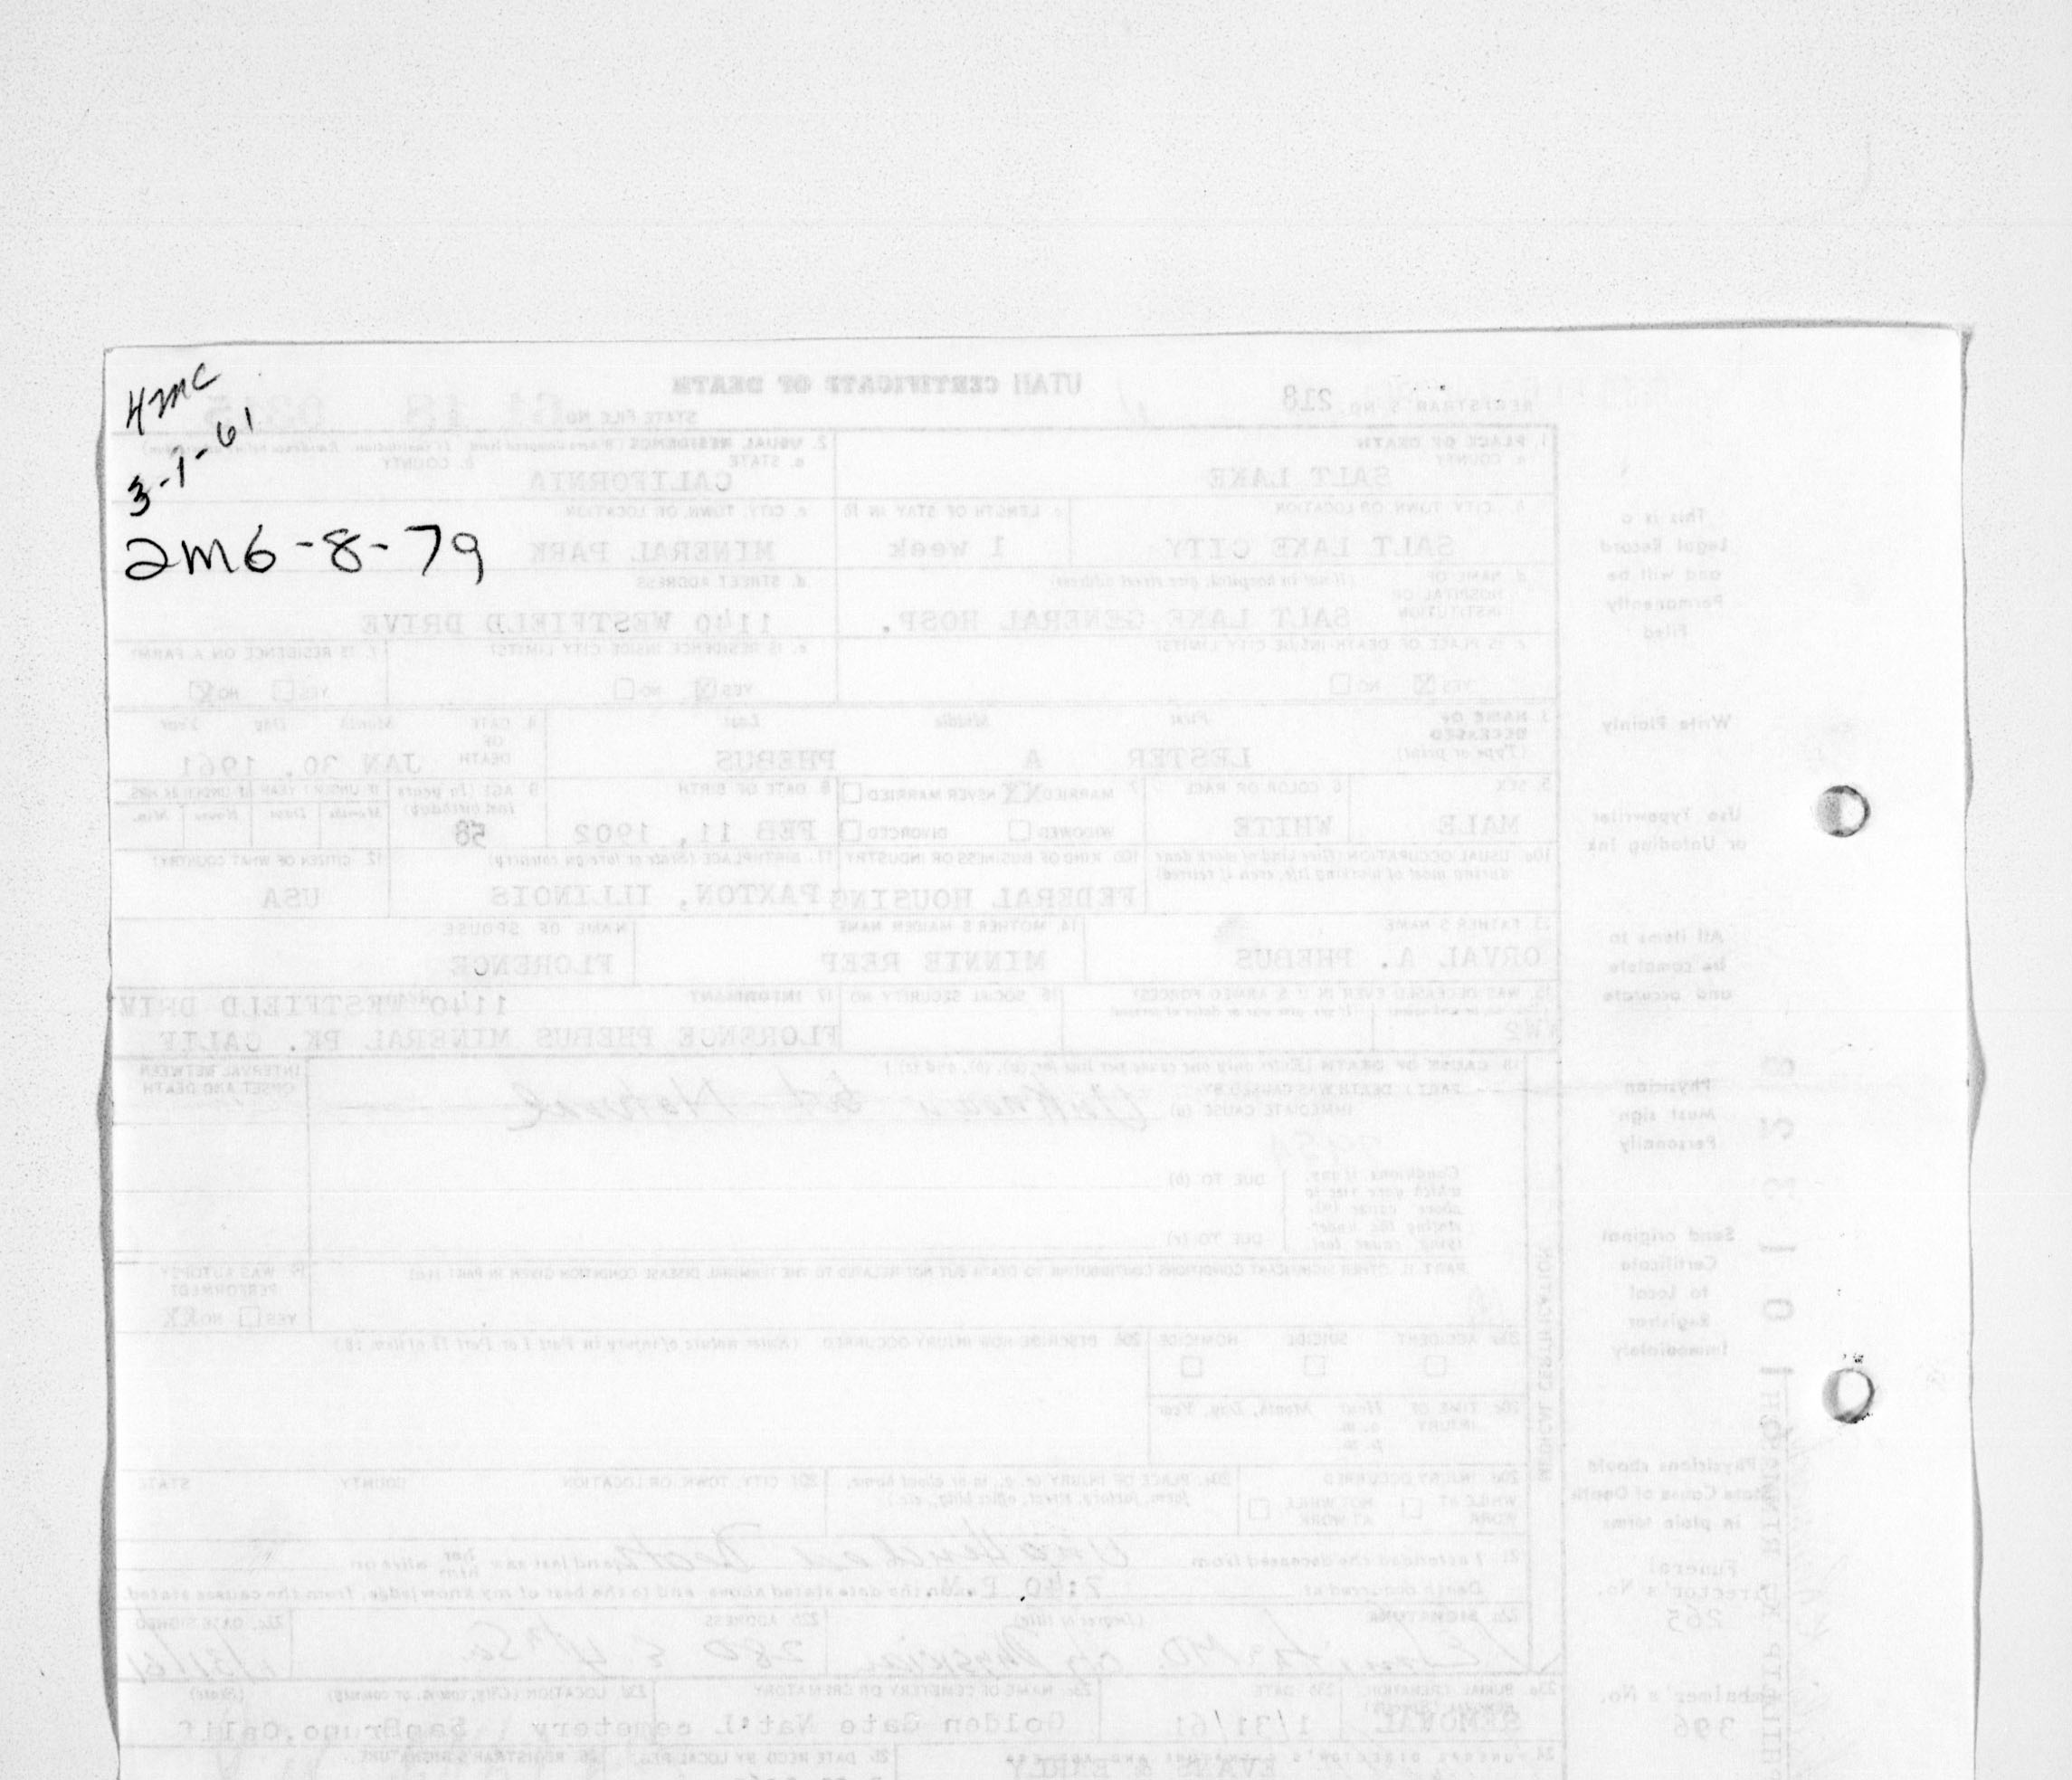 4mc
3-1-61
2m6-8-79
UTAH CERTIFICATE OF DEATH
REGISTRAR'S NO. 218
STATE FILE NO.
1. PLACE OF DEATH
a. COUNTY
SALT LAKE
2. USUAL RESIDENCE
a. STATE
b. COUNTY
CALIFORNIA
b. CITY, TOWN, OR LOCATION
SALT LAKE CITY
c. LENGTH OF STAY IN 1b
1 week
c. CITY, TOWN, OR LOCATION
MINERAL PARK
d. NAME OF HOSPITAL OR INSTITUTION (If not in hospital, give street address)
SALT LAKE GENERAL HOSP.
d. STREET ADDRESS
1140 WESTFIELD DRIVE
e. IS PLACE OF DEATH INSIDE CITY LIMITS?
YES NO
e. IS RESIDENCE INSIDE CITY LIMITS?
YES NO
f. IS RESIDENCE ON A FARM?
YES NO
3. NAME OF DECEASED (Type or print)
First Middle Last
LESTER A PHEBUS
4. DATE OF DEATH
Month Day Year
JAN 30, 1961
5. SEX
MALE
6. COLOR OR RACE
WHITE
7. MARRIED NEVER MARRIED
WIDOWED DIVORCED
8. DATE OF BIRTH
FEB 11, 1902
9. AGE (In years last birthday)
58
IF UNDER 1 YEAR IF UNDER 24 HRS.
Months Days Hours Min.
10a. USUAL OCCUPATION (Give kind of work done during most of working life, even if retired)
10b. KIND OF BUSINESS OR INDUSTRY
FEDERAL HOUSING
11. BIRTHPLACE (State or foreign country)
PAXTON, ILLINOIS
12. CITIZEN OF WHAT COUNTRY?
USA
13. FATHER'S NAME
ORVAL A. PHEBUS
14. MOTHER'S MAIDEN NAME
MINNIE REEP
NAME OF SPOUSE
FLORENCE
15. WAS DECEASED EVER IN U.S. ARMED FORCES?
WW2
16. SOCIAL SECURITY NO.
17. INFORMANT
1140 WESTFIELD DRIVE
FLORENCE PHEBUS MINERAL PK. CALIF
18. CAUSE OF DEATH (Enter only one cause per line for (a), (b), and (c).)
PART I. DEATH WAS CAUSED BY:
IMMEDIATE CAUSE (a) Unknown but Natural
INTERVAL BETWEEN ONSET AND DEATH
Conditions, if any, which gave rise to above cause (a), stating the underlying cause last
DUE TO (b)
DUE TO (c)
PART II. OTHER SIGNIFICANT CONDITIONS CONTRIBUTING TO DEATH BUT NOT RELATED TO THE TERMINAL DISEASE CONDITION GIVEN IN PART I(a)
19. WAS AUTOPSY PERFORMED?
YES NO
20a. ACCIDENT SUICIDE HOMICIDE
20b. DESCRIBE HOW INJURY OCCURRED (Enter nature of injury in Part I or Part II of item 18.)
20c. TIME OF INJURY Hour Month, Day, Year
a.m.
p.m.
20d. INJURY OCCURRED
WHILE AT WORK NOT WHILE AT WORK
20e. PLACE OF INJURY (e.g., in or about home, farm, factory, street, office bldg., etc.)
20f. CITY, TOWN, OR LOCATION COUNTY STATE
21. I attended the deceased from Unattended Death and last saw her him alive on
Death occurred at 7:40 P.M. on the date stated above, and to the best of my knowledge, from the causes stated.
22a. SIGNATURE (Degree or title)
MD. City Physician
22b. ADDRESS
22c. DATE SIGNED
1/31/61
23a. BURIAL, CREMATION, REMOVAL (Specify)
REMOVAL
23b. DATE
1/31/61
23c. NAME OF CEMETERY OR CREMATORY
Golden Gate Nat'l cemetery
23d. LOCATION (City, town, or county) (State)
San Bruno, Calif
24. FUNERAL DIRECTOR'S SIGNATURE AND ADDRESS
EVANS & EARLY
25. DATE REC'D BY LOCAL REG.
26. REGISTRAR'S SIGNATURE
MEDICAL CERTIFICATION
This is a
Legal Record
and will be
Permanently
Filed
Write Plainly
Use Typewriter
or Unfading Ink
All items to
be complete
and accurate
Physician
Must sign
Personally
Send original
Certificate
to Local
Registrar
Immediately
Physicians should
State Cause of Death
in plain terms
Funeral
Director's No.
265
Embalmer's No.
396